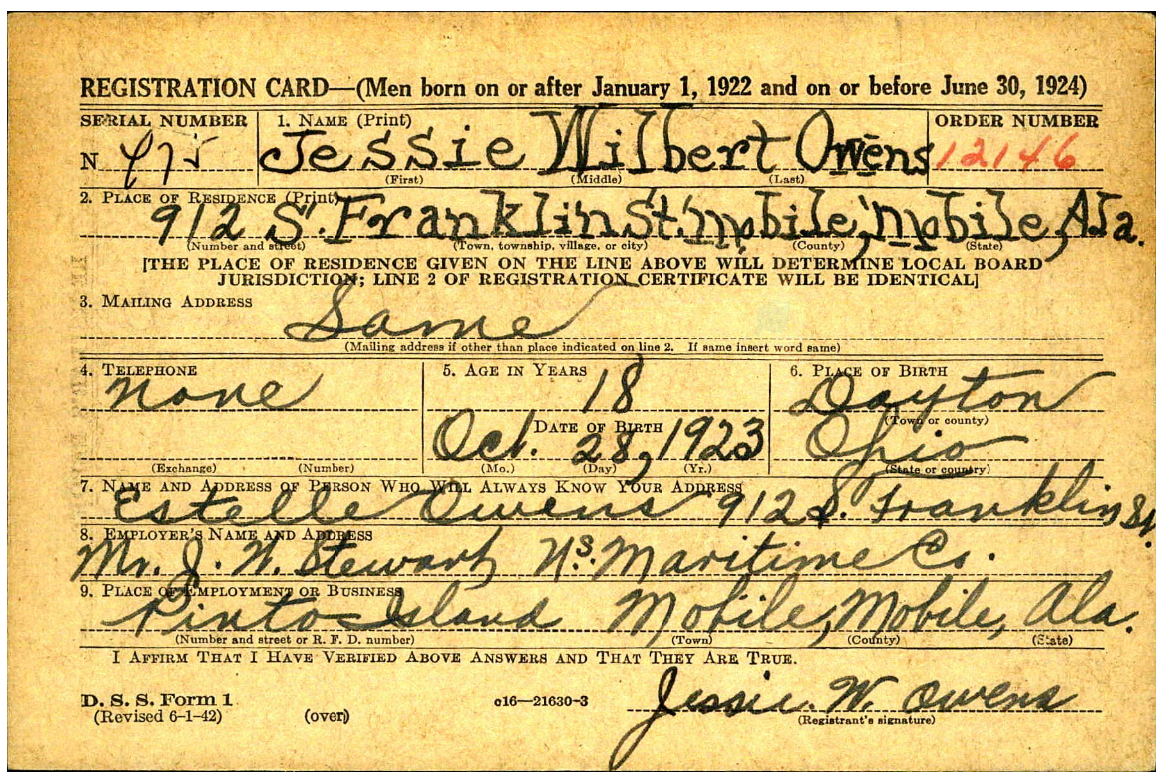 REGISTRATION CARD—(Men born on or after January 1, 1922 and on or before June 30, 1924)
SERIAL NUMBER 1. NAME (Print) ORDER NUMBER
N Jessie Wilbert Owens 12146
(First) (Middle) (Last)
2. PLACE OF RESIDENCE (Print)
912 S. Franklin St. Mobile, Mobile, Ala.
(Number and street) (Town, township, village, or city) (County) (State)
[THE PLACE OF RESIDENCE GIVEN ON THE LINE ABOVE WILL DETERMINE LOCAL BOARD
JURISDICTION; LINE 2 OF REGISTRATION CERTIFICATE WILL BE IDENTICAL]
3. MAILING ADDRESS
Same
(Mailing address if other than place indicated on line 2. If same insert word same)
4. TELEPHONE 5. AGE IN YEARS 6. PLACE OF BIRTH
none 18 Dayton
DATE OF BIRTH (Town or county)
Oct. 28, 1923 Ohio
(Exchange) (Number) (Mo.) (Day) (Yr.) (State or country)
7. NAME AND ADDRESS OF PERSON WHO WILL ALWAYS KNOW YOUR ADDRESS
Estelle Owens 912 S. Franklin St.
8. EMPLOYER'S NAME AND ADDRESS
Mr. J. W. Stewart U.S. Maritime Co.
9. PLACE OF EMPLOYMENT OR BUSINESS
Pinto Island Mobile, Mobile, Ala.
(Number and street or R. F. D. number) (Town) (County) (State)
I AFFIRM THAT I HAVE VERIFIED ABOVE ANSWERS AND THAT THEY ARE TRUE.
D. S. S. Form 1 c16—21630-3 Jessie. W. Owens
(Revised 6-1-42) (over) (Registrant's signature)